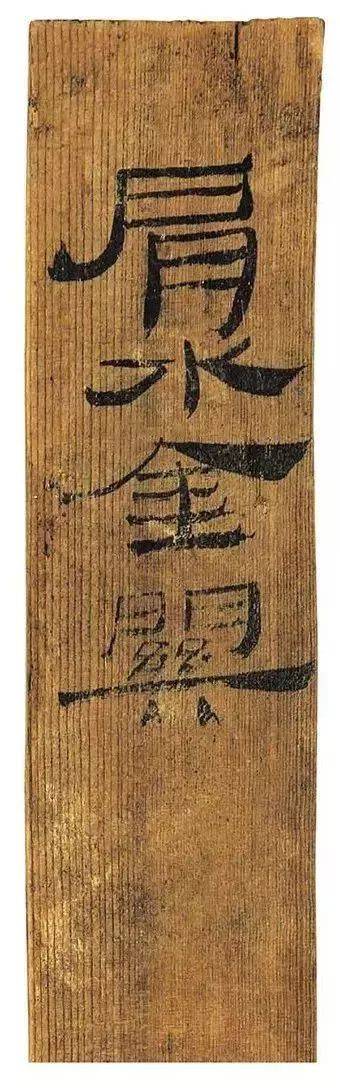 肩水金關